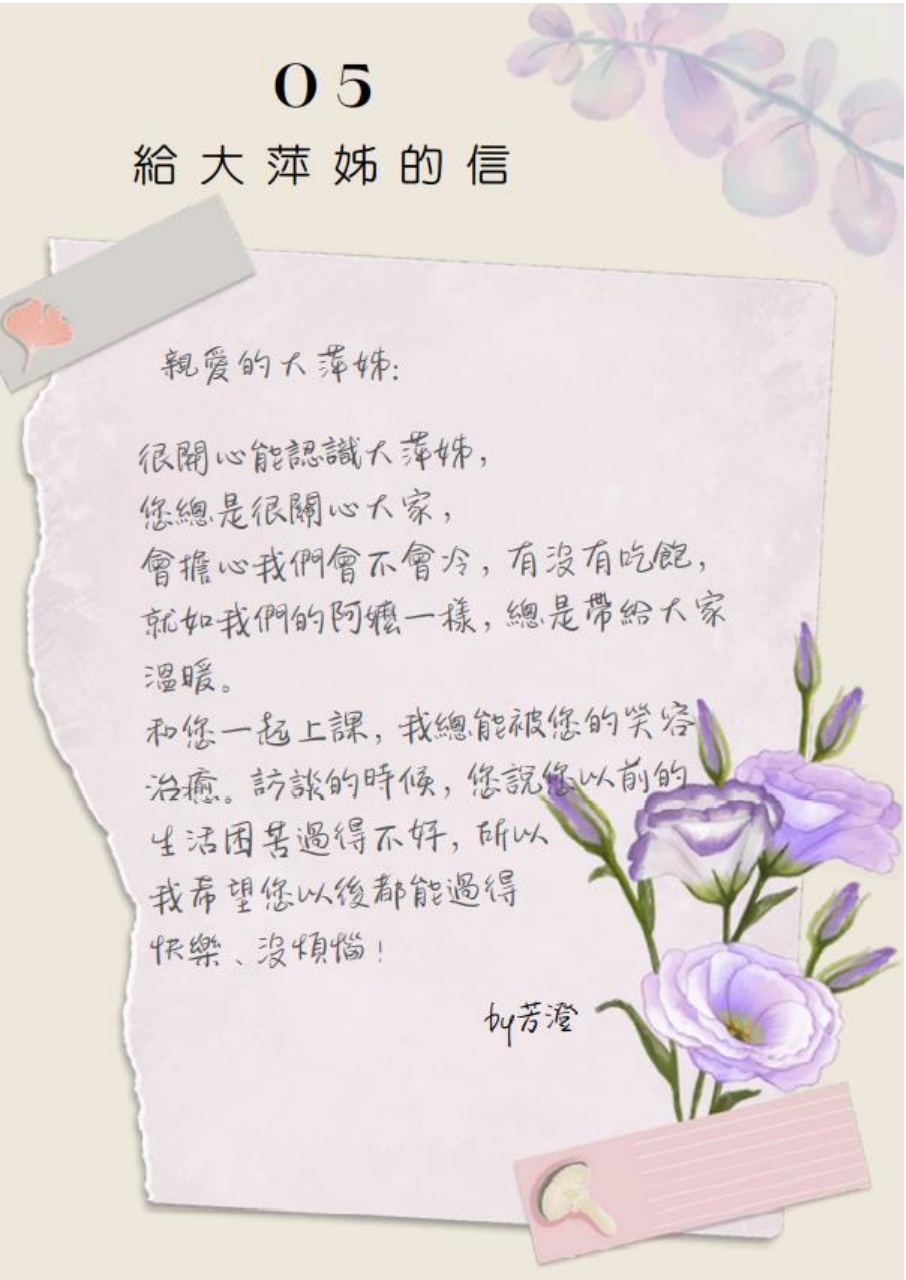 05
給大萍姊的信
親愛的大萍姊:
很開心能認識大萍姊,
您總是很關心大家,
會擔心我們會不會冷,有沒有吃飽,
就如我們的阿嬤一樣,總是帶給大家
溫暖。
和您一起上課,我總能被您的笑容
治癒。訪談的時候,您說您以前的
生活困苦過得不好,所以
我希望您以後都能過得
快樂、沒煩惱!
by芳澄